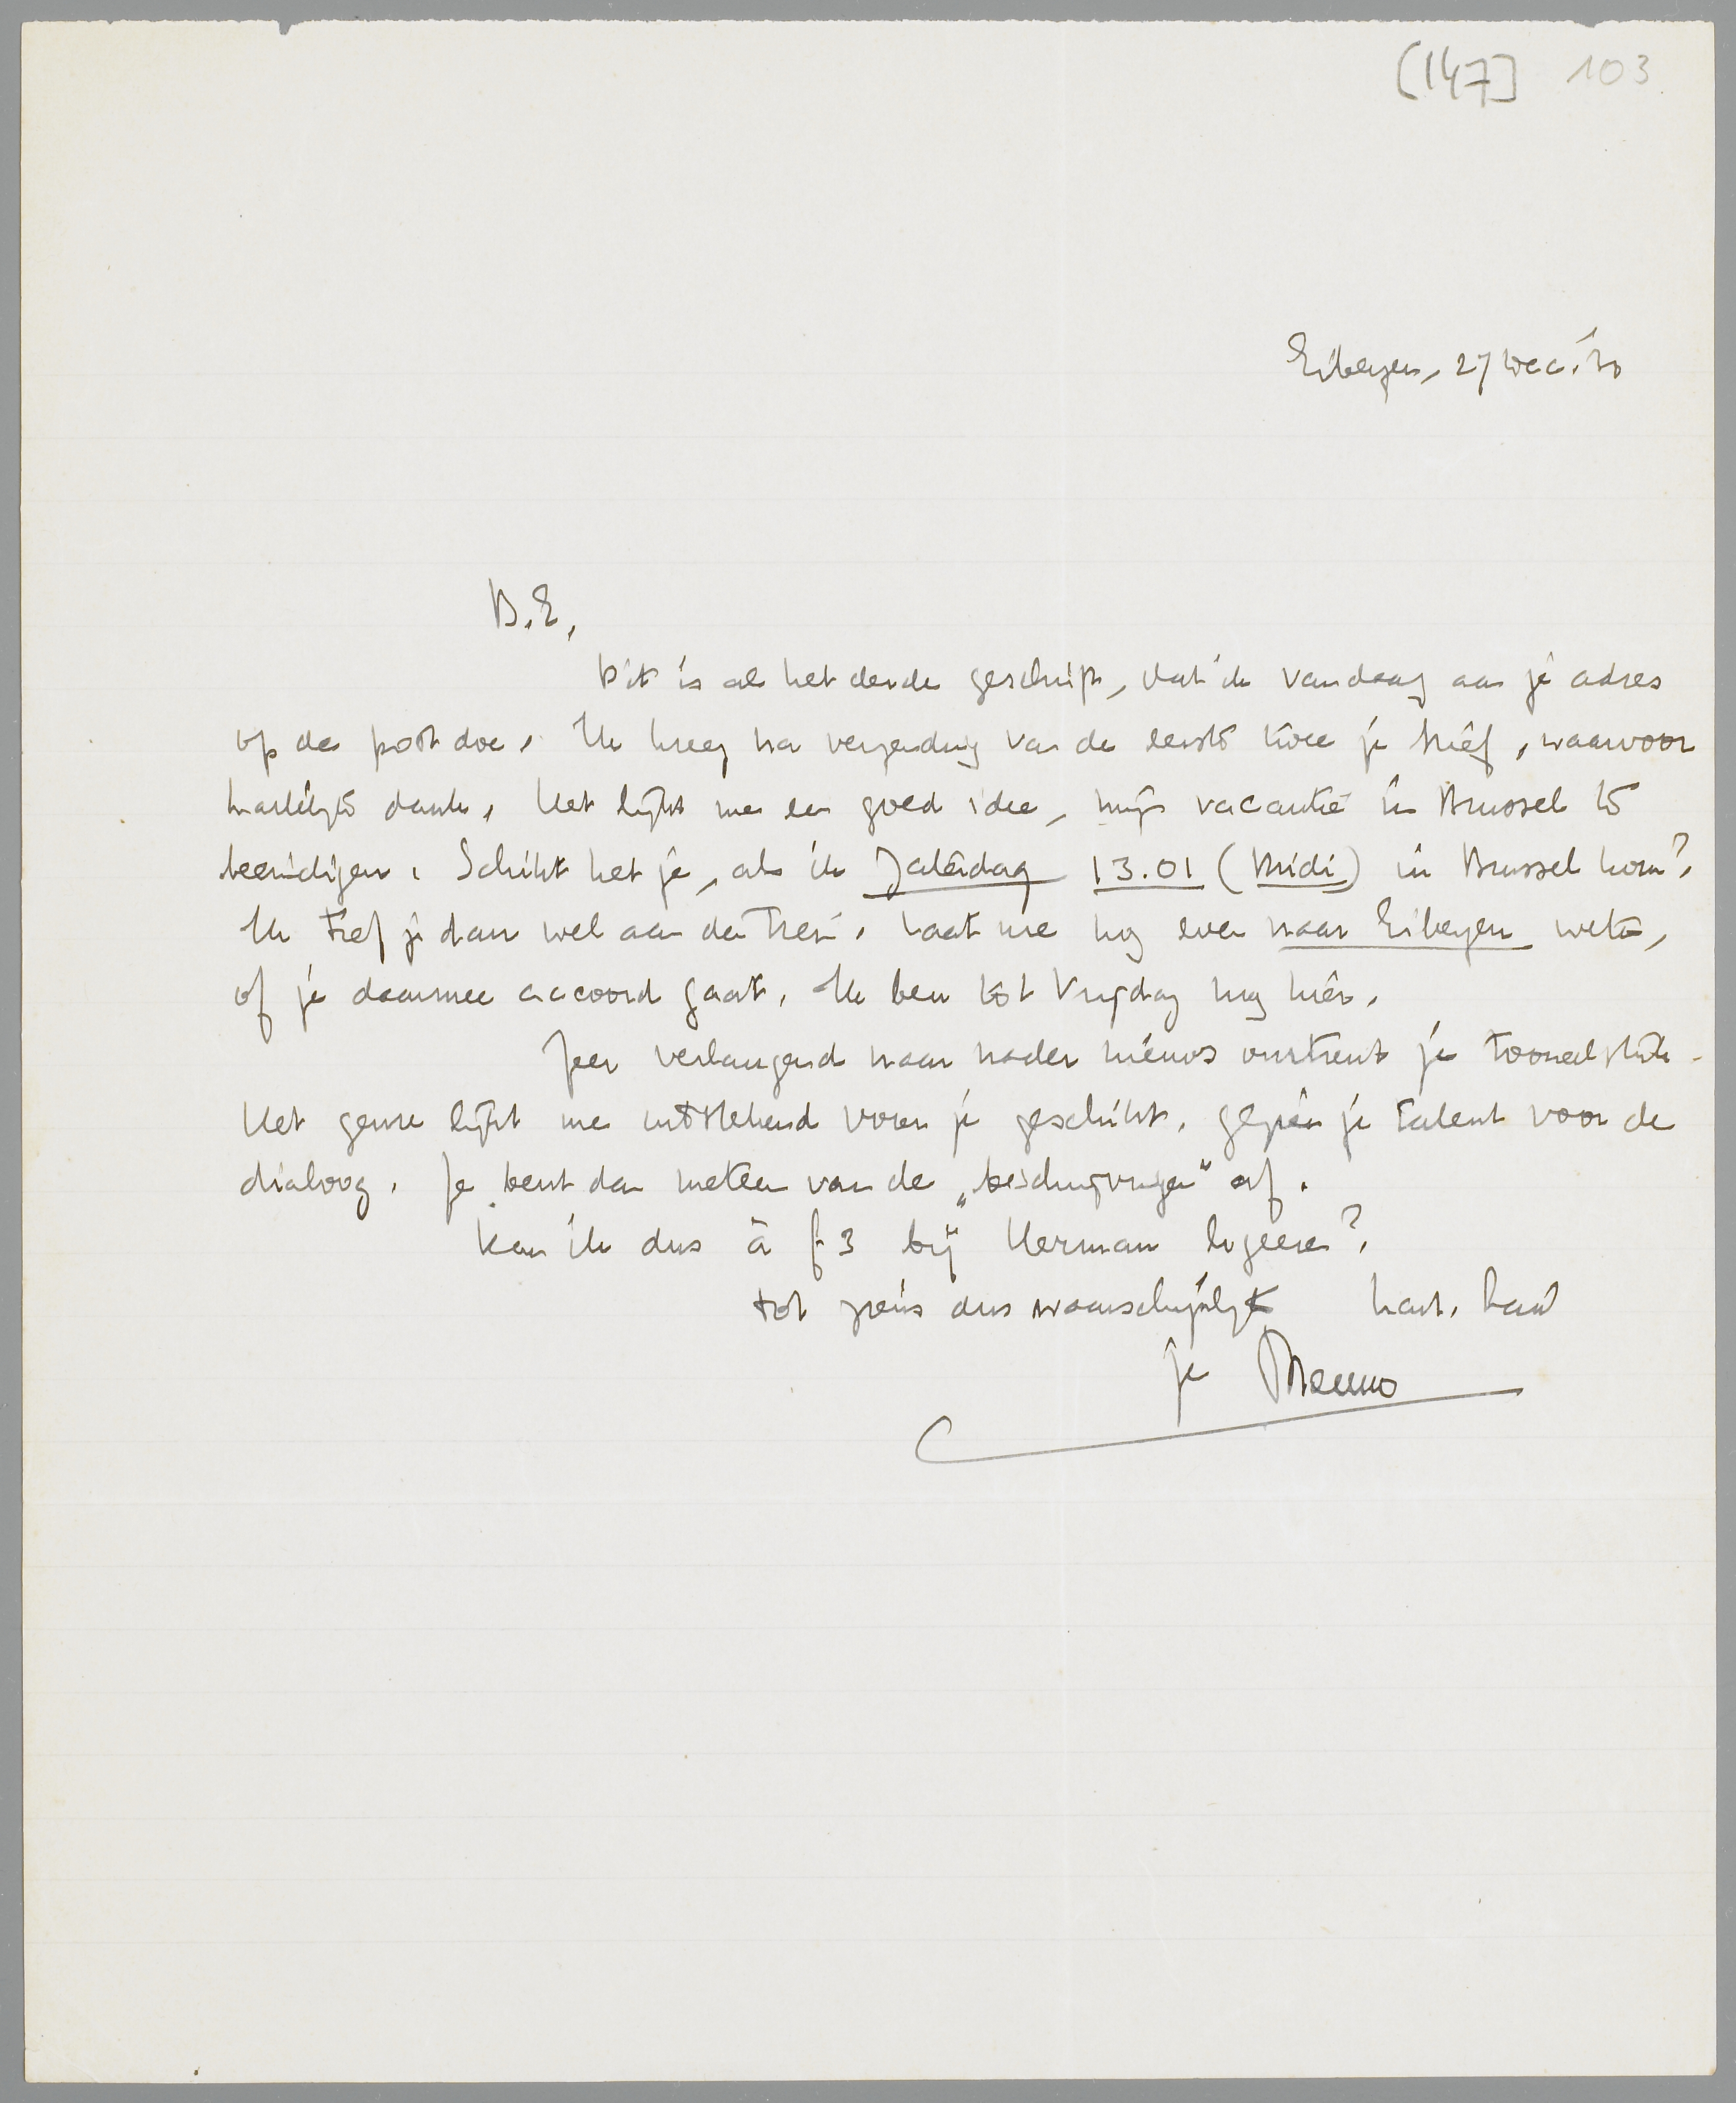 [147] 103
Eibergen, 27 Dec. '30
B.E,
Dit is al het derde geschrift, dat ik vandaag aan je adres
op de post doe. Ik kreeg na verzending van de eerste twee je brief, waarvoor
hartelijk dank. Het lijkt me een goed idee, mijn vacantie in Brussel te
beeindigen. Schikt het je, als ik Zaterdag 13.01 (Midi) in Brussel kom?
Ik tref je dan wel aan de trein. Laat me nog even naar Eibergen weten,
of je daarmee accoord gaat. Ik ben tot Vrijdag nog hier.
Zeer verlangend naar nader nieuws omtrent je tooneelstuk.
Het genre lijkt me uitstekend voor je geschikt, gezien je talent voor de
dialoog. Je bent dan meteen van de „beschrijvingen" af.
Kan ik dus à f 3 bij Herman logeeren?
Tot ziens dus waarschijnlijk hart. hand
je Menno